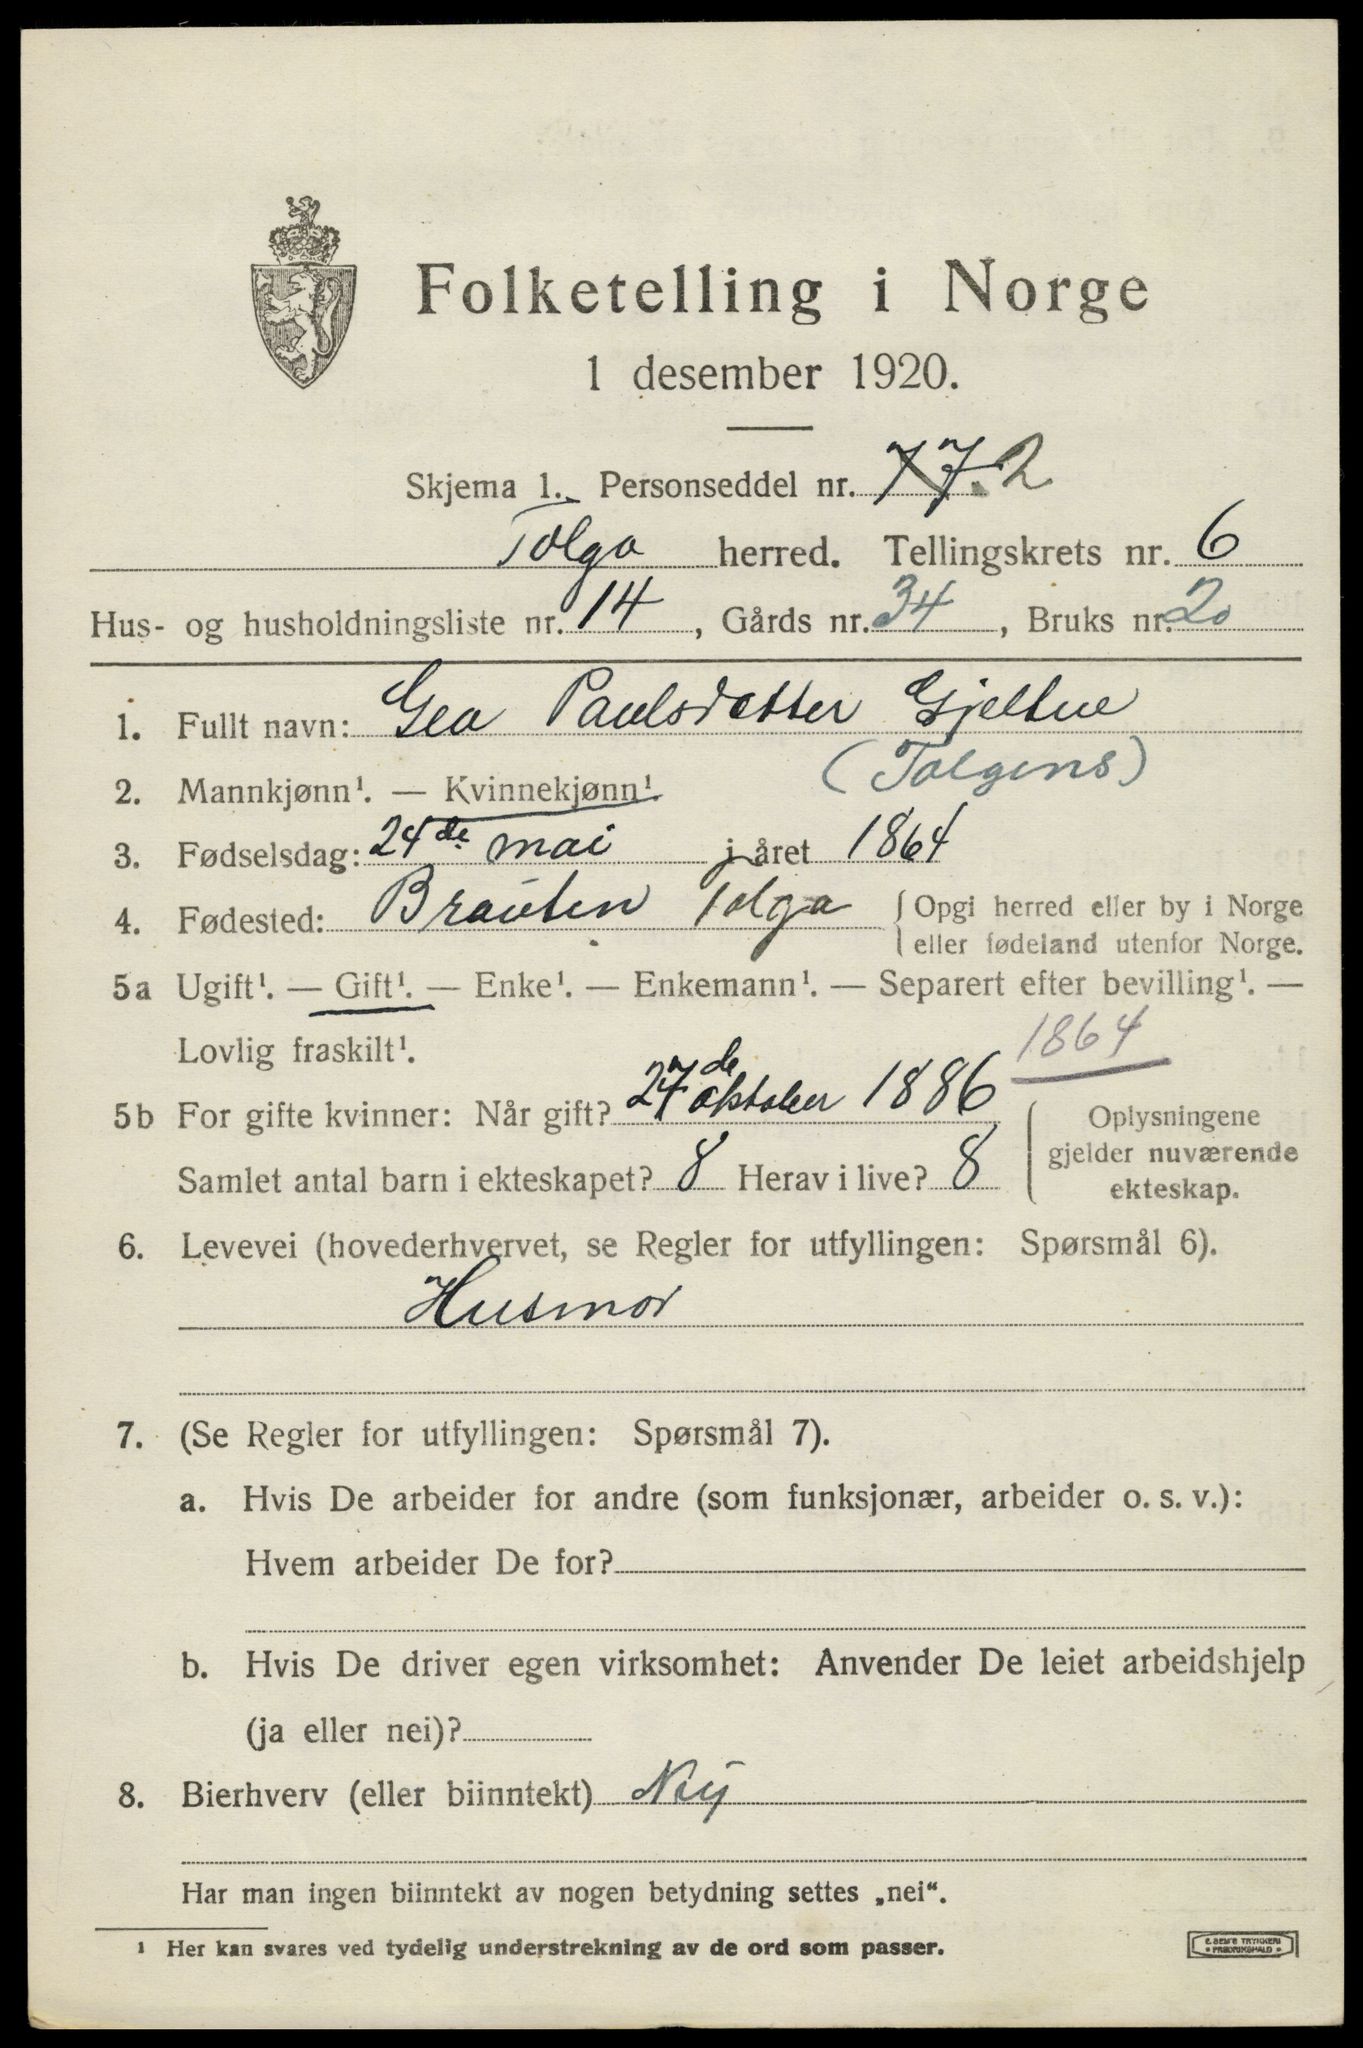 Folketelling i Norge
1 desember 1920.
Skjema 1. Personseddel nr. 77.2
Tolga herred. Tellingskrets nr. 6
Hus- og husholdningsliste nr. 14, Gårds nr. 34, Bruks nr. 20
1. Fullt navn: Gea Paulsdatter Gjeltue
(Tolgens)
2. Mannkjønn¹. — Kvinnekjønn¹
3. Fødselsdag: 24de mai i året 1864
4. Fødested: Braúten Tolga { Opgi herred eller by i Norge
eller fødeland utenfor Norge.
5a Ugift¹. — Gift¹. — Enke¹. — Enkemann¹. — Separert efter bevilling¹. —
Lovlig fraskilt¹. 1864
5b For gifte kvinner: Når gift? 27de oktober 1886 { Oplysningene
gjelder nuværende
Samlet antal barn i ekteskapet? 8 Herav i live? 8 ekteskap.
6. Levevei (hovederhvervet, se Regler for utfyllingen: Spørsmål 6).
Husmor
7. (Se Regler for utfyllingen: Spørsmål 7).
a. Hvis De arbeider for andre (som funksjonær, arbeider o. s. v.):
Hvem arbeider De for?
b. Hvis De driver egen virksomhet: Anvender De leiet arbeidshjelp
(ja eller nei)?
8. Bierhverv (eller biinntekt) Neij
Har man ingen biinntekt av nogen betydning settes „nei“.
¹ Her kan svares ved tydelig understrekning av de ord som passer.
E. SEM'S TRYKKERI
• FREDRIKSHALD •